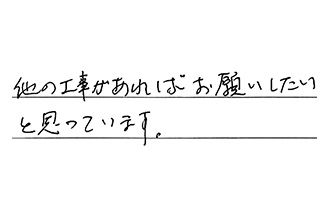 他の工事があればお願いしたい
と思っています。